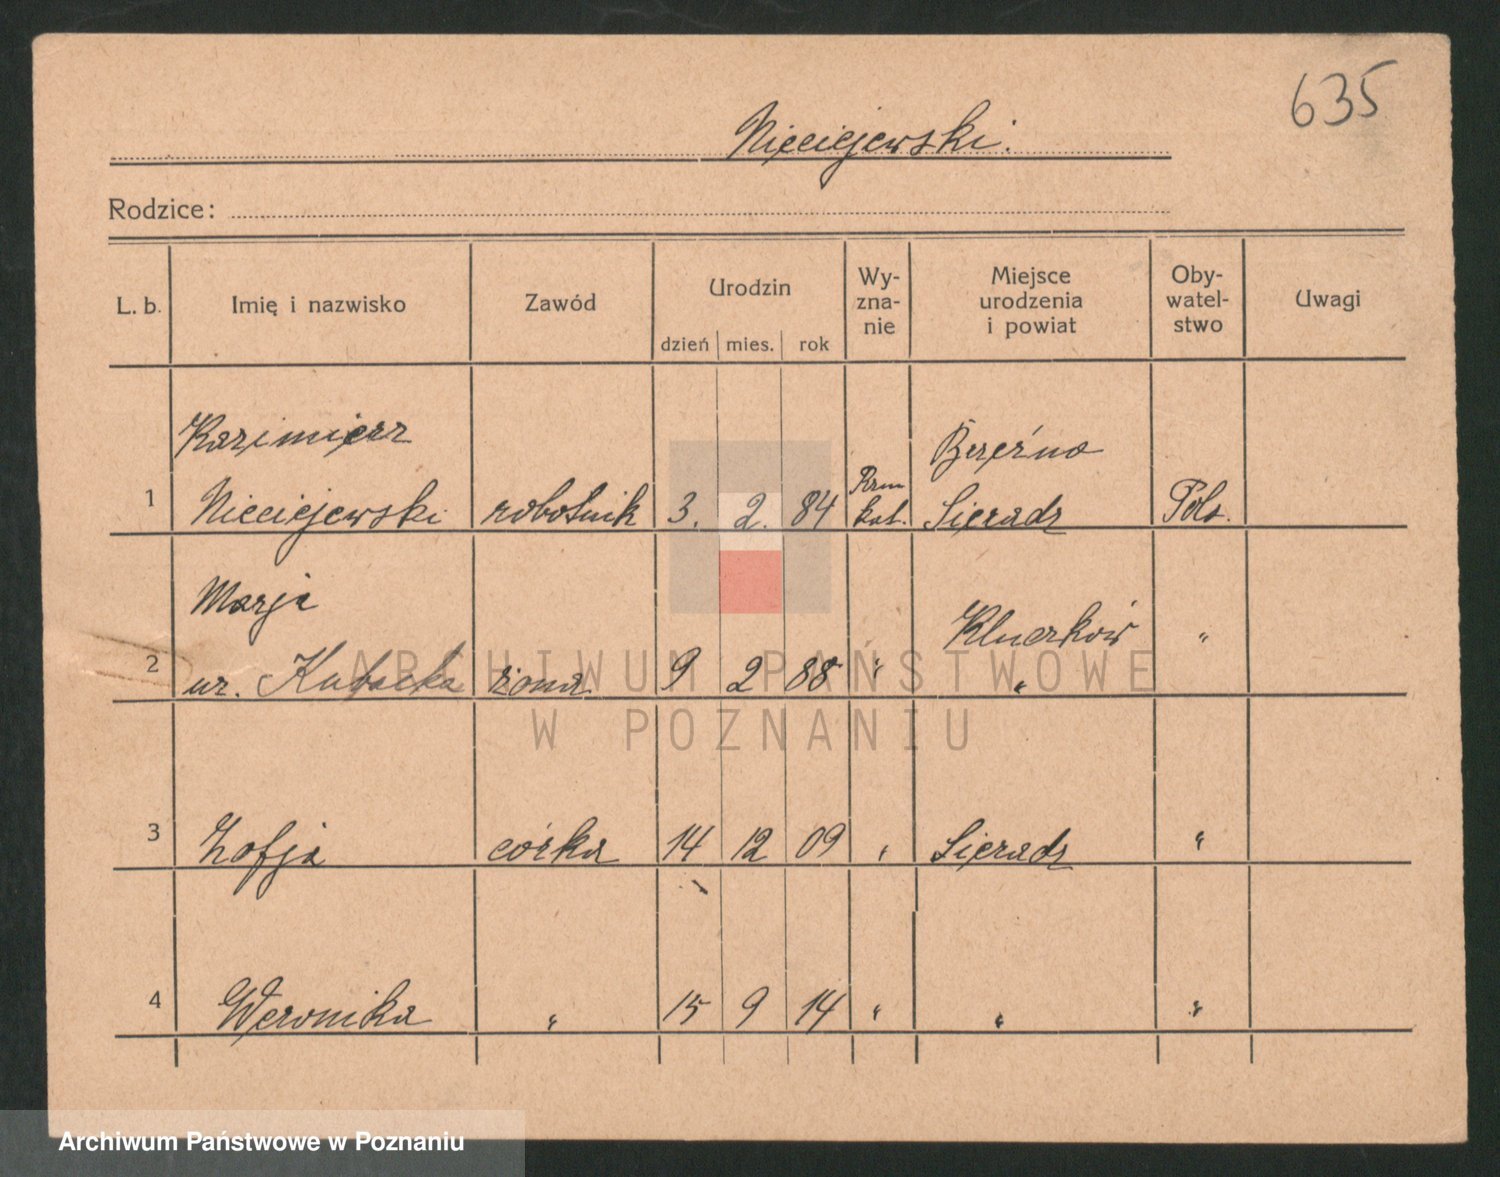 635
Nieciejewski.
Rodzice:
L. b. Imię i nazwisko Zawód Urodzin dzień mies. rok Wy-zna-nie Miejsce urodzenia i powiat Oby-watel-stwo Uwagi
Kazimierz Brzeźno
1 Nieciejewski robotnik 3. 2. 84 Rzm kat. Sieradz Pols.
Marja Kluczków "
2 ur. Kubacka żona 9 2 88 " "
3 Zofja córka 14 12 09 " Sieradz "
4 Weronika " 15 9 14 " " "
ARCHIWUM PAŃSTWOWE
W POZNANIU
Archiwum Państwowe w Poznaniu